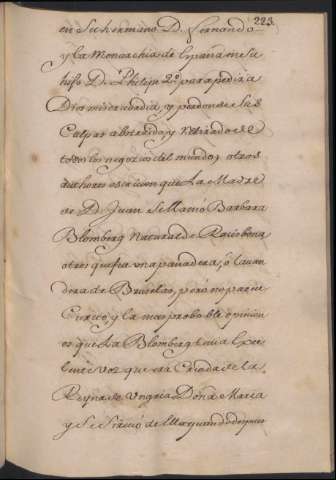 223.
en Su hermano D. Fernando
y la Monarchia de España en su
hijo D. Phelipe 2º para pedir a
Dios misericordia, y perdon de sus
Culpas aborrecido, y retirado de
todos los negocios del mundo, otros
authores escriven que la Madre
de D. Juan Se llamó Barbara
Blomberg natural de Ratisbona
otros que fue una panadera, ó lavan
dera de Bruselas, pero no parece
cierto, y la mas probable opinion
es que la Blomberg tenia Exce
lente voz que era Criada de la
Reyna de Ungria Doña Maria
y Se Sirvió de ella quando